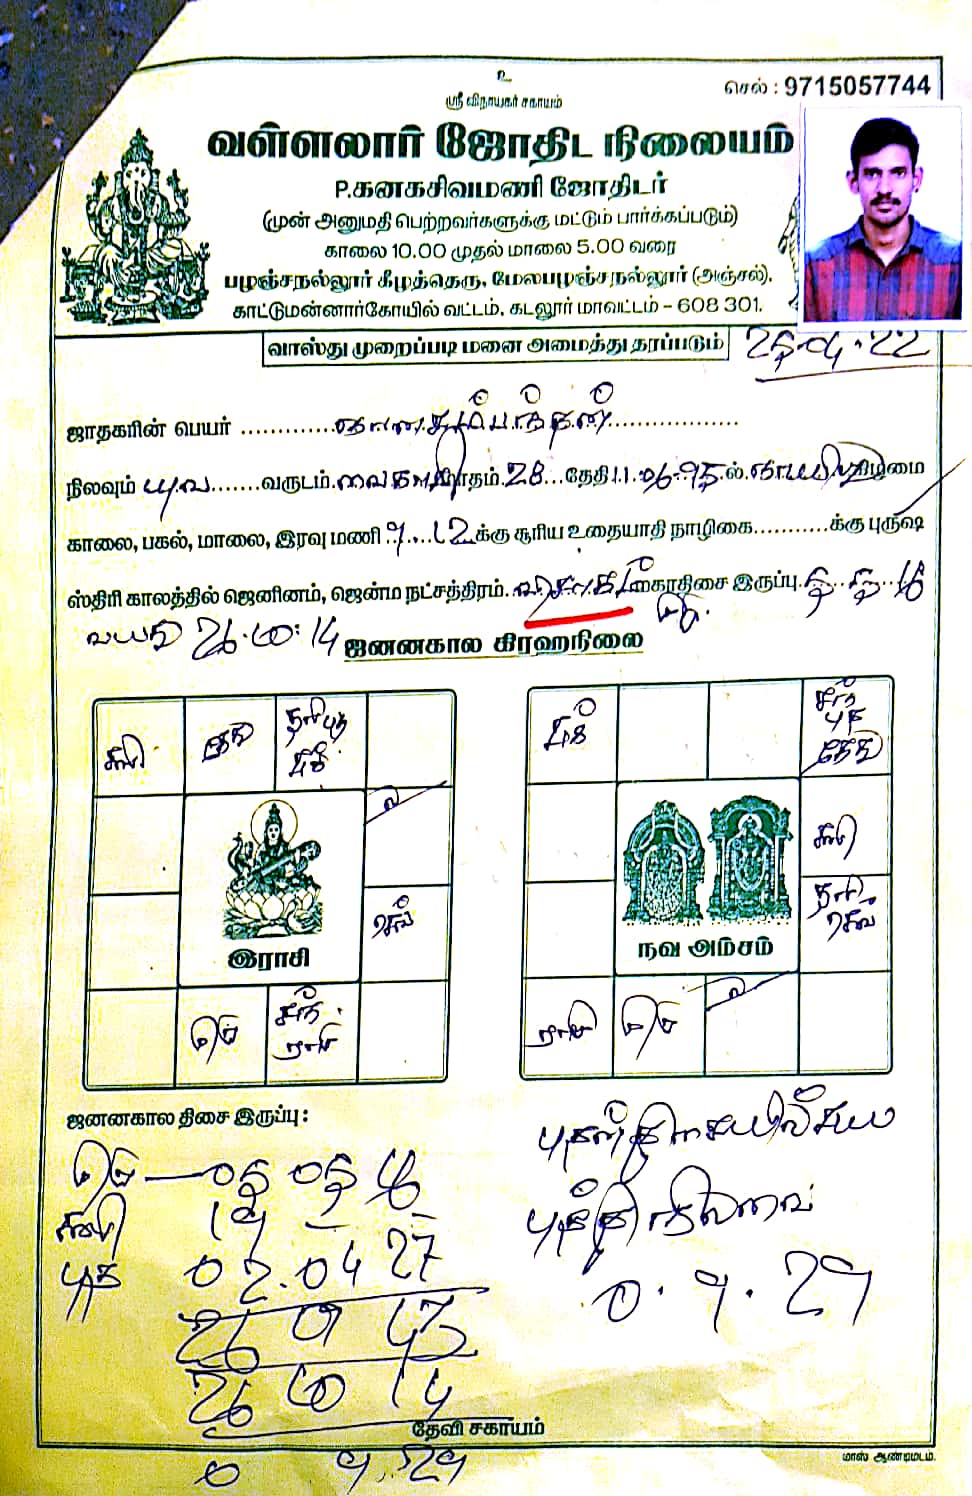 உ
செல் : 9715057744
ஸ்ரீ விநாயகர் சகாயம்
வள்ளலார் ஜோதிட நிலையம்
P.கனகசிவமணி ஜோதிடர்
(முன் அனுமதி பெற்றவர்களுக்கு மட்டும் பார்க்கப்படும்)
காலை 10.00 முதல் மாலை 5.00 வரை
பழஞ்சநல்லூர் கீழத்தெரு, மேலபழஞ்சநல்லூர் (அஞ்சல்),
காட்டுமன்னார்கோயில் வட்டம், கடலூர் மாவட்டம் - 608 301.
வாஸ்து முறைப்படி மனை அமைத்து தரப்படும்
25.04.22
ஜாதகரின் பெயர் ..............................
நிலவும் யுவ.......வருடம்.வைகாசி மாதம்.28...தேதி.11.06.95.ல்.ஞாயிறு கிழமை
காலை, பகல், மாலை, இரவு மணி 9...12 க்கு சூரிய உதையாதி நாழிகை...........க்கு புருஷ
ஸ்திரி காலத்தில் ஜெனினம், ஜென்ம நட்சத்திரம். மகாதிசை இருப்பு.
வயது 26
ஜனனகால கிரஹநிலை
சனி
சுக்
சூரி புத
கேது
ல
செவ்
சந்
ராகு
குரு
இராசி
கேது
சந்
புத
சுக்
சனி
சூரி
செவ்
ராகு
குரு
ல
நவ அம்சம்
ஜனனகால திசை இருப்பு :
குரு
சனி 19 - -
புத 02.04 27
14
0 9.29
புதன் திசையில் சுய
புத்தி நிலவை
0.9.29
தேவி சகாயம்
மாஸ் ஆண்டிமடம்.